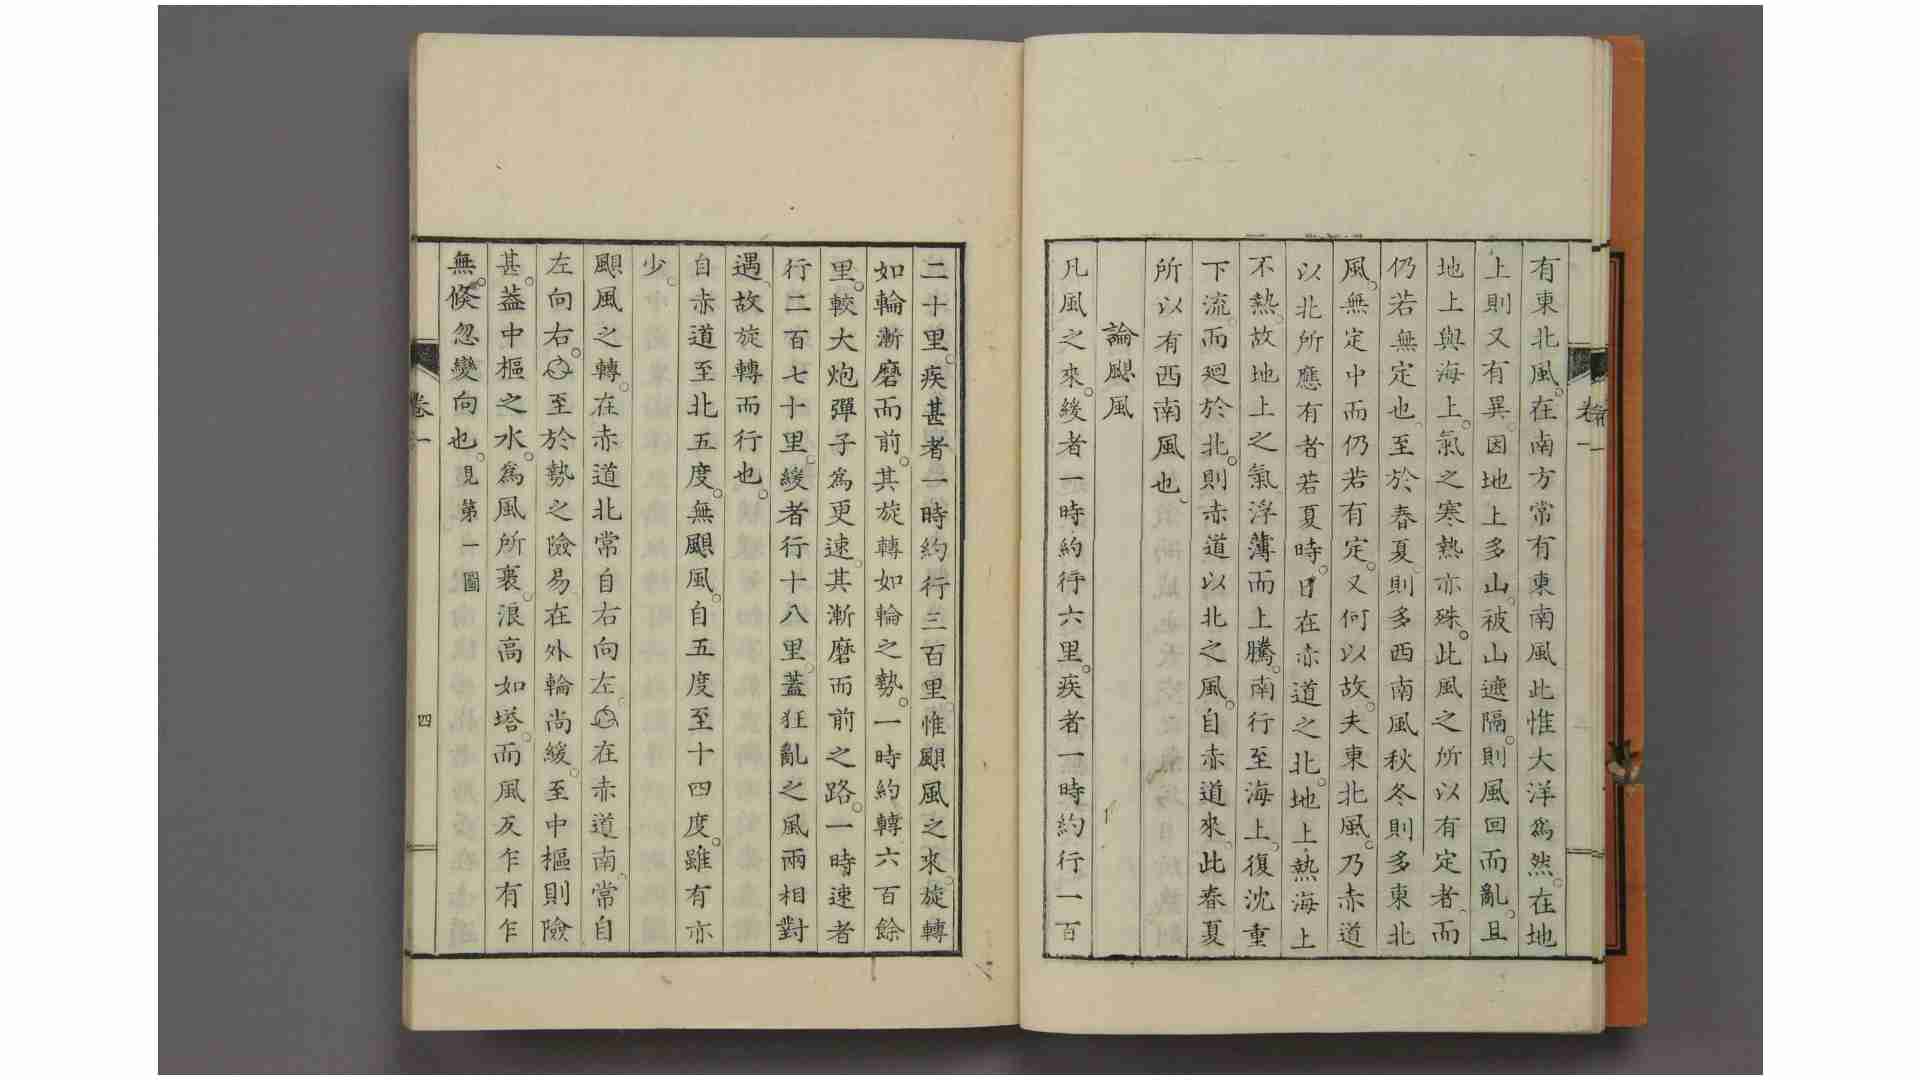 有東北風。在南方常有東南風此惟大洋爲然。在地
上則又有異。因地上多山。被山遮隔。則風回而亂。且
地上與海上。氣之寒熱亦殊。此風之所以有定者、而
仍若無定也、至於春夏、則多西南風秋冬則多東北
風。無定中而仍若有定。又何以故。夫東北風。乃赤道
以北所應有者若夏時。日在赤道之北。地上熱海上
不熱。故地上之氣浮薄而上騰。南行至海上。復沈重
下流。而廻於北。則赤道以北之風。自赤道來、此春夏
所以有西南風也、
論颶風
凡風之來。緩者一時約行六里。疾者一時約行一百
二十里。疾甚者一時約行三百里。惟颶風之來。旋轉
如輪漸磨而前。其旋轉如輪之勢。一時約轉六百餘
里。較大炮彈子爲更速。其漸磨而前之路。一時速者
行二百七十里。緩者行十八里。蓋狂亂之風兩相對
遇、故旋轉而行也。
自赤道至北五度。無颶風。自五度至十四度。雖有亦
少。
颶風之轉。在赤道北常自右向左。在赤道南、常自
左向右。至於勢之險易、在外輪尚緩。至中樞則險
甚。蓋中樞之水。爲風所裹。浪高如塔。而風又乍有乍
無。倏忽變向也。見第一圖
卷一
四
卷一